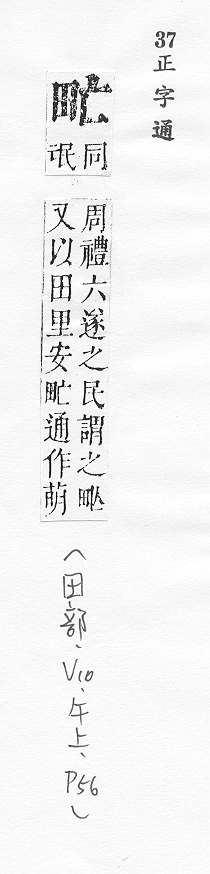 37
正字通
甿
同
氓
周禮六遂之民謂之甿
又以田里安甿通作萌
(田部、V10、午上、P56)